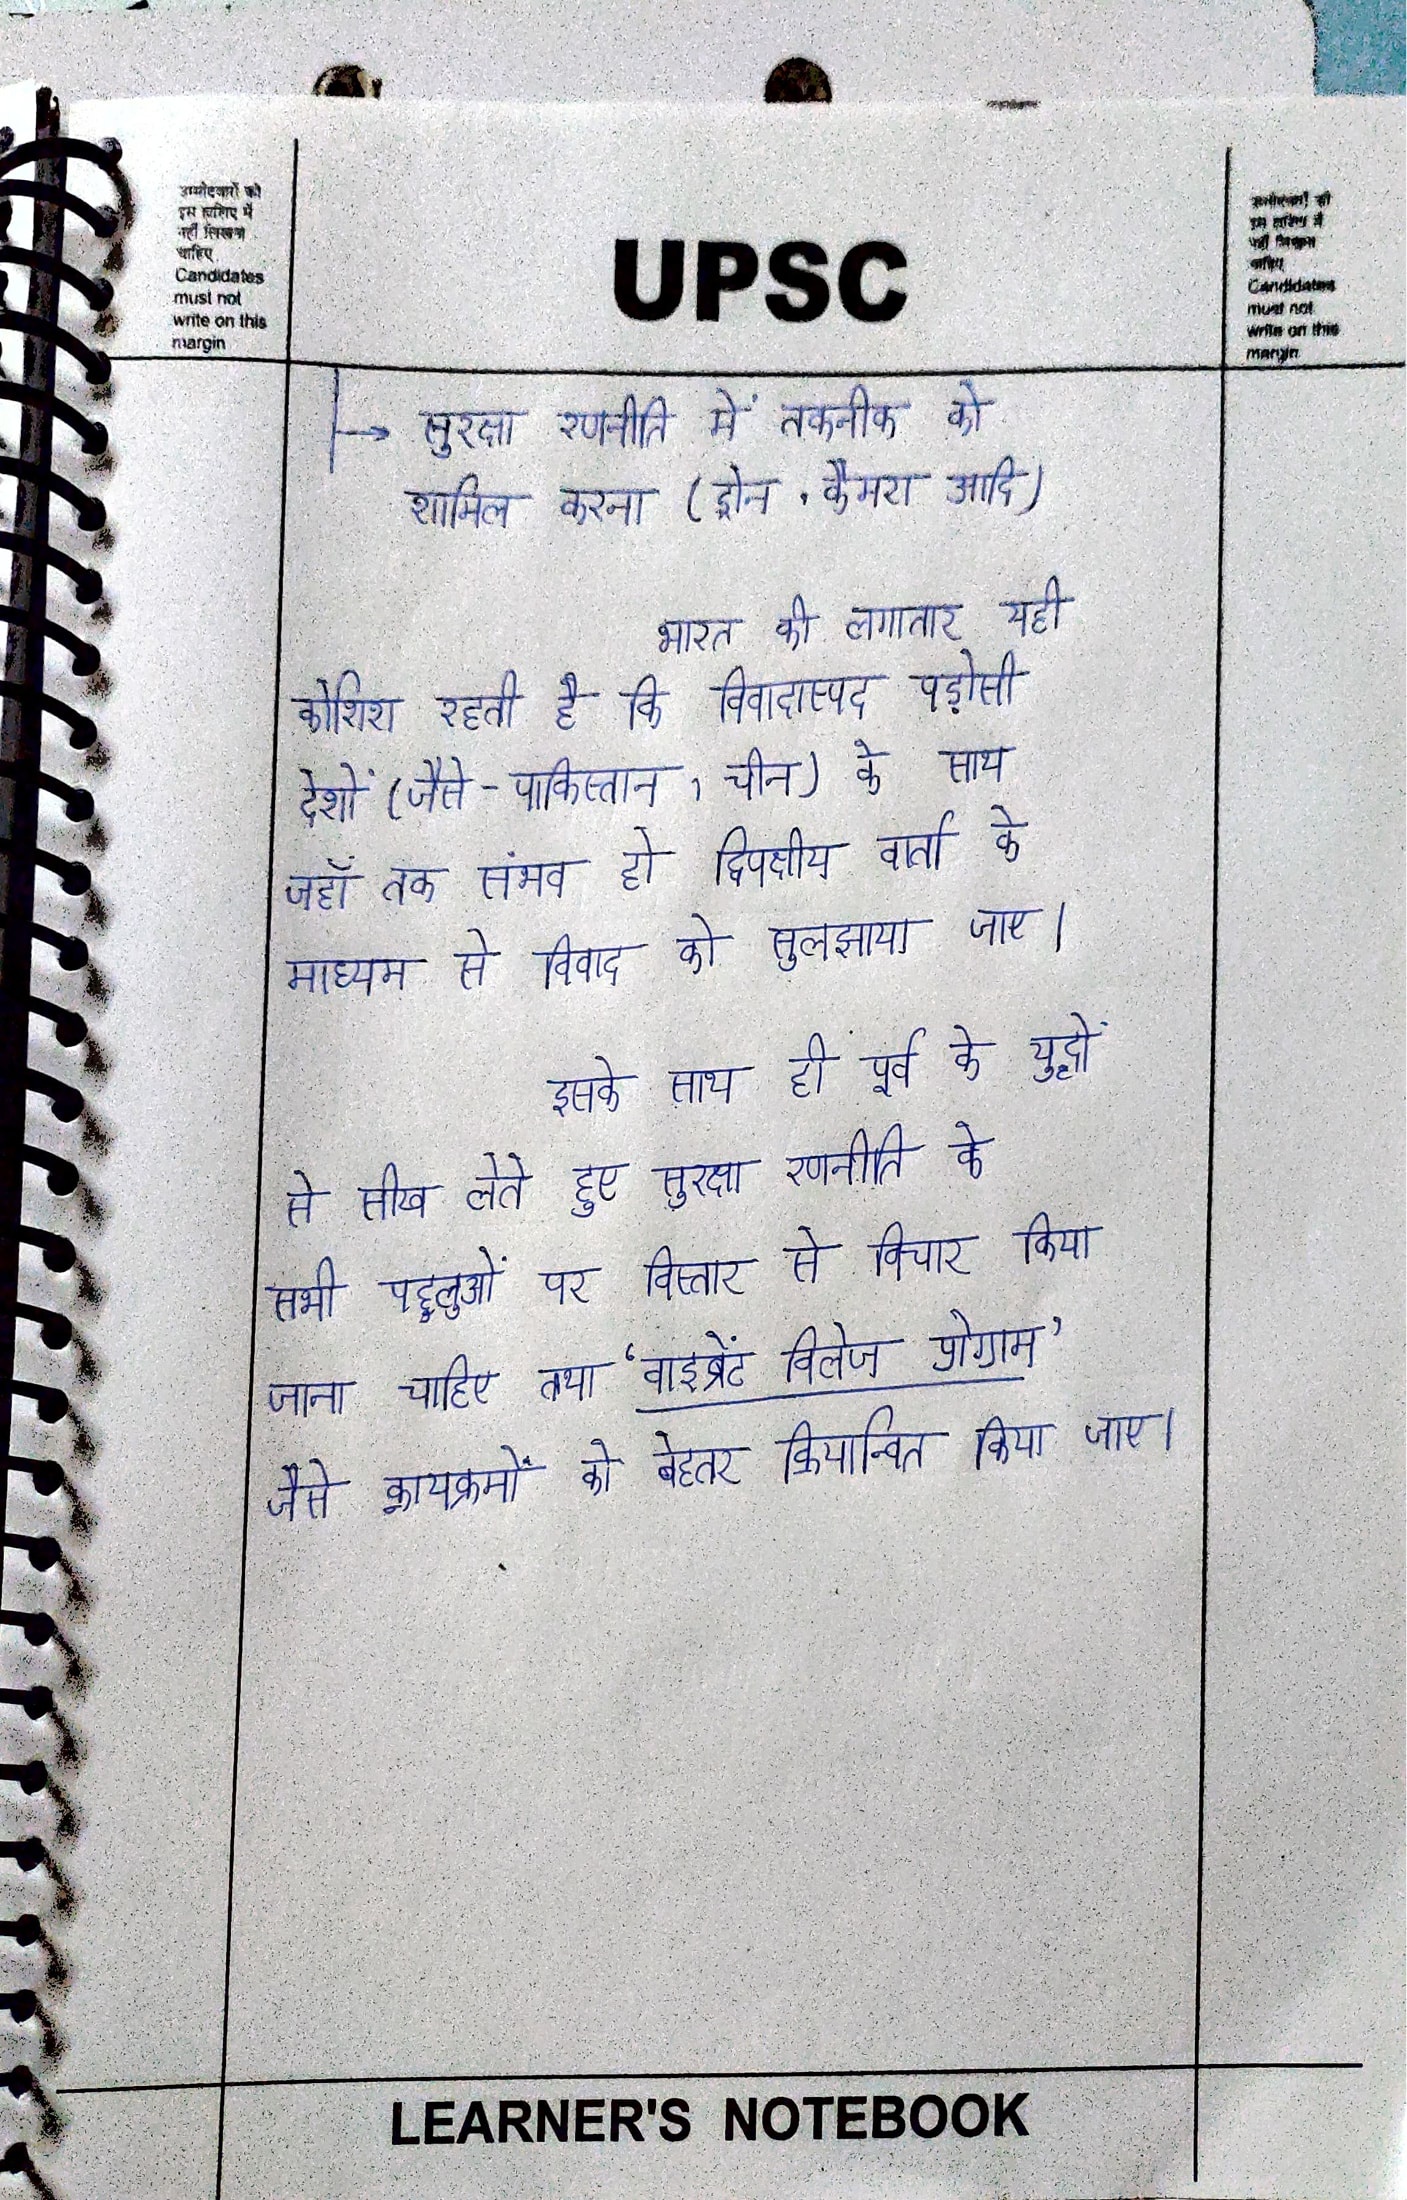 उम्मीदवारों को
इस हाशिए में
नहीं लिखना
चाहिए
Candidates
must not
write on this
margin
UPSC
उम्मीदवारों को
इस हाशिए में
नहीं लिखना
चाहिए
Candidates
must not
write on this
margin
→ सुरक्षा रणनीति में तकनीक को
शामिल करना (ड्रोन, कैमरा आदि)
भारत की लगातार यही
कोशिश रहती है कि विवादास्पद पड़ोसी
देशों (जैसे - पाकिस्तान, चीन) के साथ
जहाँ तक संभव हो द्विपक्षीय वार्ता के
माध्यम से विवाद को सुलझाया जाए।
इसके साथ ही पूर्व के युद्धों
से सीख लेते हुए सुरक्षा रणनीति के
सभी पहलुओं पर विस्तार से विचार किया
जाना चाहिए तथा 'वाइब्रेंट विलेज प्रोग्राम'
जैसे कार्यक्रमों को बेहतर क्रियान्वित किया जाए।
LEARNER'S NOTEBOOK